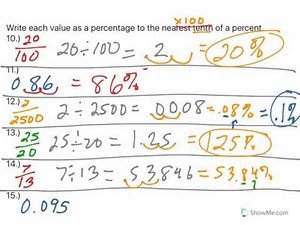 Write each value as a percentage to the nearest tenth of a percent.
×100
10.) 20/100 20÷100 = .2 = 20%
11.) 0.86 = 86%
12.) 2/2500 2÷2500 = .0008 = .08% = .1%
13.) 25/20 25÷20 = 1.25 = 125%
14.) 7/13 7÷13 = .53846 = 53.84%
15.) 0.095
ShowMe.com